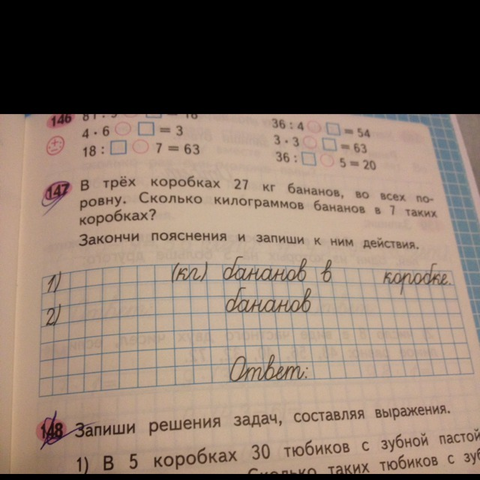 146
4 · 6 ○ □ = 3
18 : □ ○ 7 = 63
36 : 4 ○ □ = 54
3 · 3 ○ □ = 63
36 : □ ○ 5 = 20
147 В трёх коробках 27 кг бананов, во всех по-
ровну. Сколько килограммов бананов в 7 таких
коробках?
Закончи пояснения и запиши к ним действия.
1) (кг) бананов в коробке.
2) бананов
Ответ:
148 Запиши решения задач, составляя выражения.
1) В 5 коробках 30 тюбиков с зубной пастой
Сколько таких тюбиков с зуб